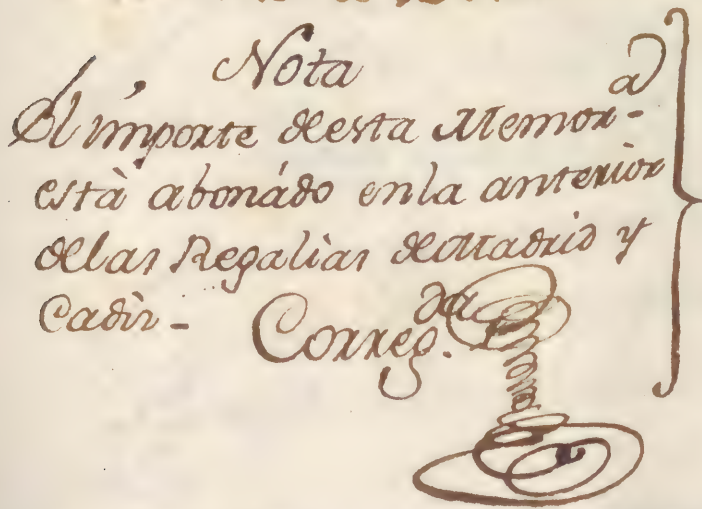 Nota
El importe de esta Memor.ª
està abonádo en la anterior
de las Regalìas de Madrid y
Cadìz -
Correg.da